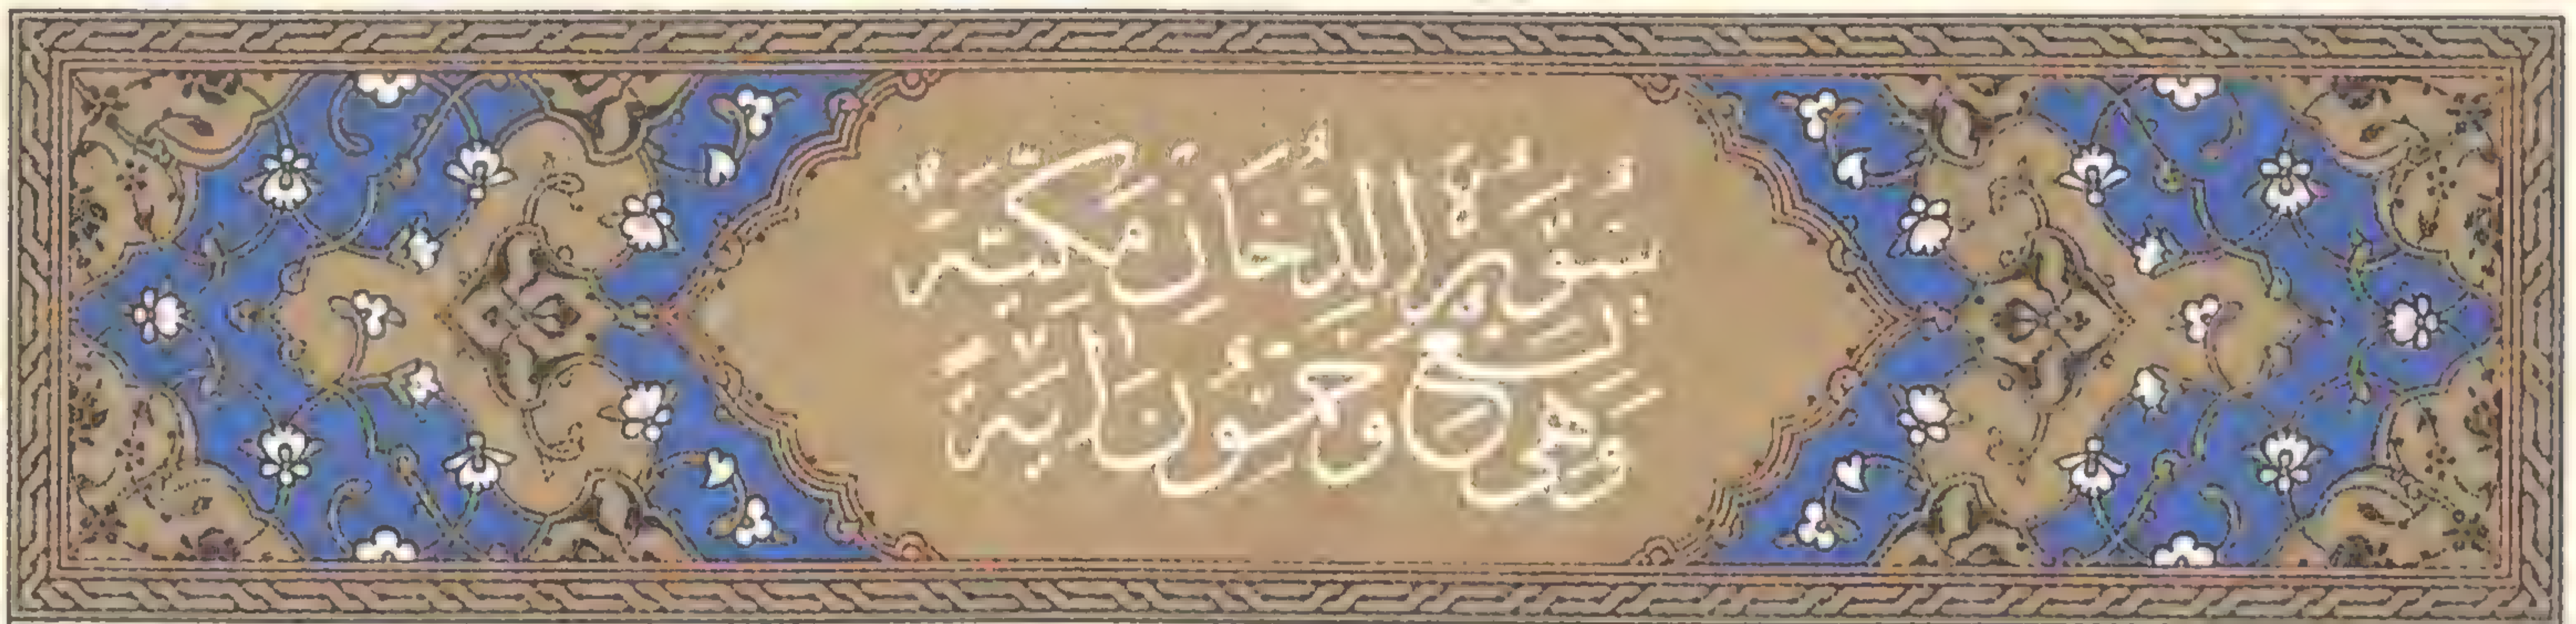 سُورَةُ الدُّخَانِ مَكِّيَّةٌ
وَهِيَ تِسْعٌ وَخَمْسُونَ اٰيَةً